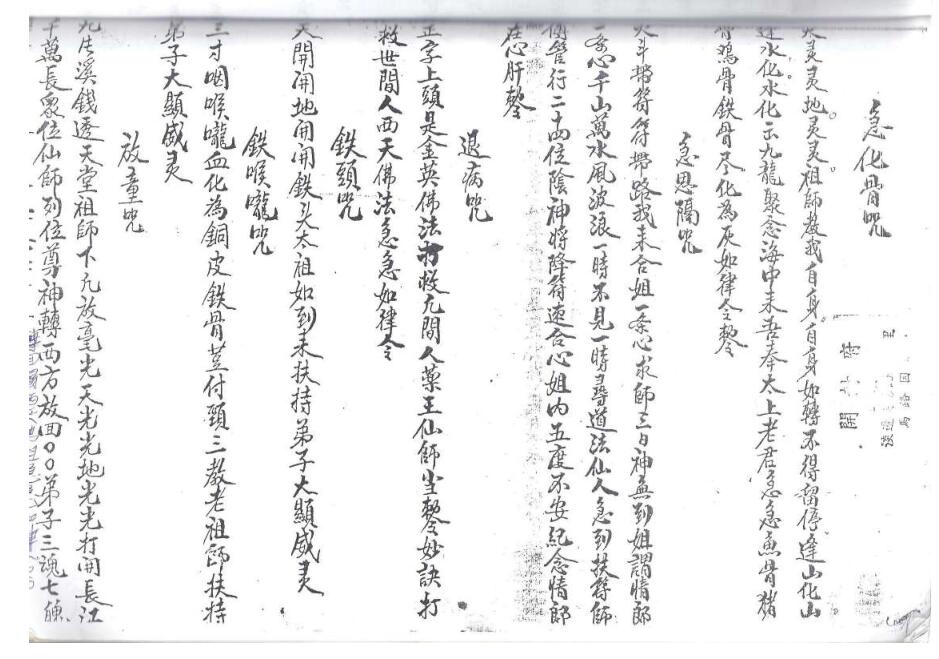 急化骨咒
天灵灵地灵灵祖師教我自身自身如轉不得留停逢山化山
逢水化水化示九龍聚念海中来吾奉太上老君急急魚骨猪
骨鸡骨鉄骨尽化為灰如律令
急思隔咒
火斗帶符符帶路我来合姐一条心求師三日神無到姐謂情郎
一条心千山萬水風波浪一時不見一時尋道法仙人急到扶尊師
行二十四位陰神將降符速合心姐内五度不安紀念情郎
在心肝
退病咒
正字上頭是金英佛法打救凡間人藥王仙師坐妙訣打
救世間人西天佛法急急如律令
鉄頭咒
天開開地開開鉄头太祖如到来扶持弟子大顯威灵
鉄喉嚨咒
三寸咽喉嚨血化為銅皮鉄骨付頸三教老祖師扶持
弟子大顯威灵
放童咒
九牛溪錢透天堂祖師下凡放毫光天光光地光光打開長江
千萬長眾位仙師列位尊神轉西方放回〇〇弟子三魂七